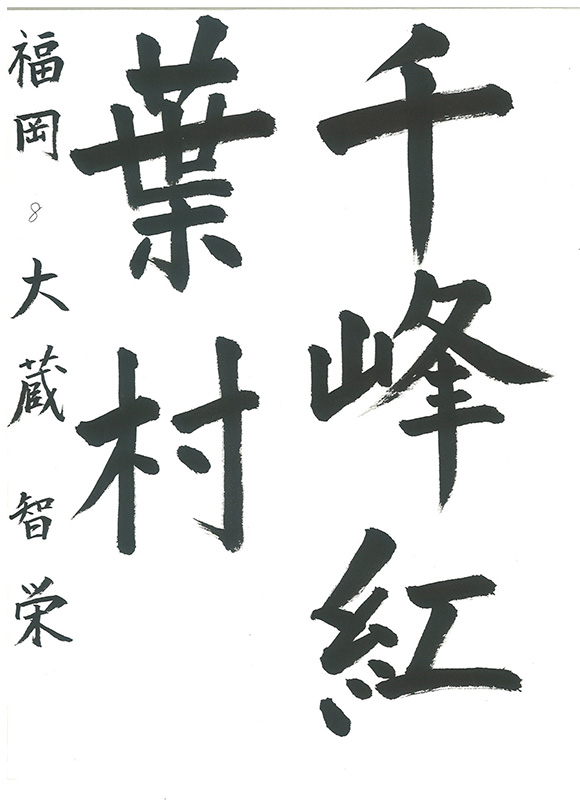 千峰紅
葉村
福岡 8 大蔵智栄